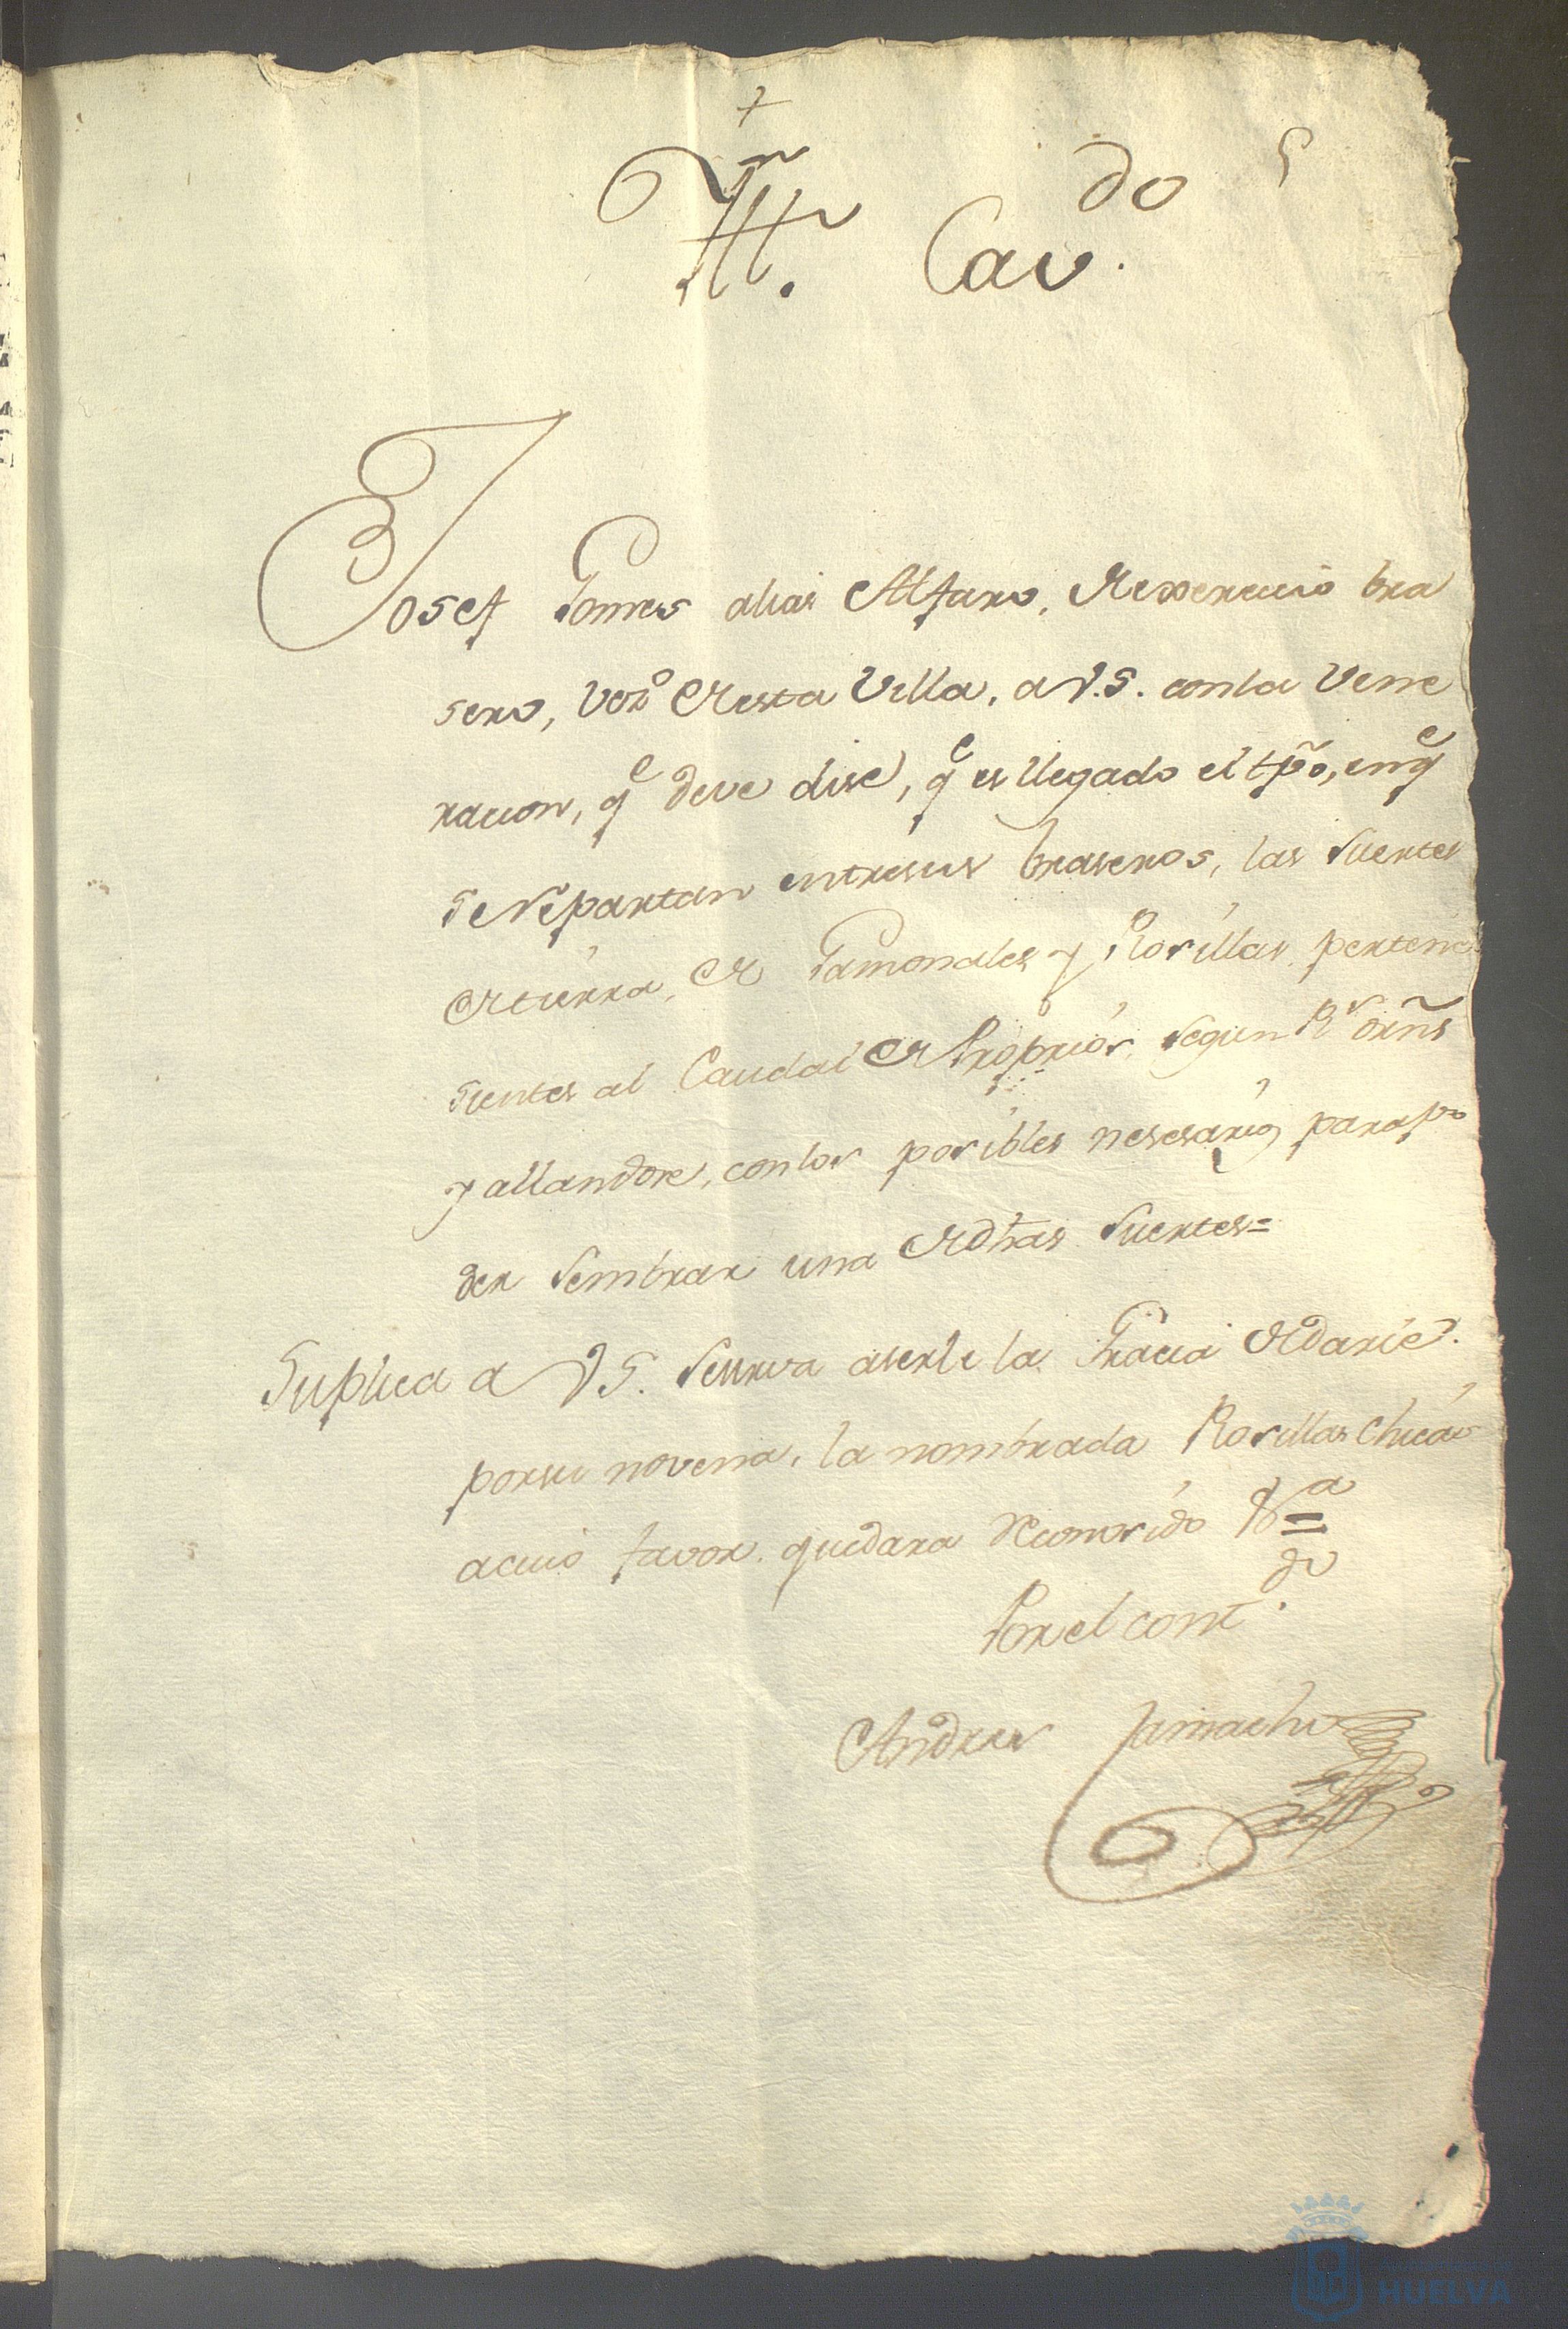 +
Ill.e Cav.do
Josef Gomes alias Alfaro, de exercicio bra
sero, Vezº de esta Villa, a V.S. con la Vene
racion, q.e deve dise, q.e es llegado el tpõ, en q.e
se repartan entresus braseros, las suertes
de tierra, de Gamonales y Rosillas pertene
sientes al Caudal de Proprios, segun R.s orñs
y allandose, con los posibles nesesarios para po
der sembrar una de dhas suertes=
Suplica a VS. se sirva aserle la Gracia de darle
por su novena, la nombrada Rosillas chicas
a cuio favor quedara reconosido V.a=
Por el cont.do
Andres Camacho
HUELVA